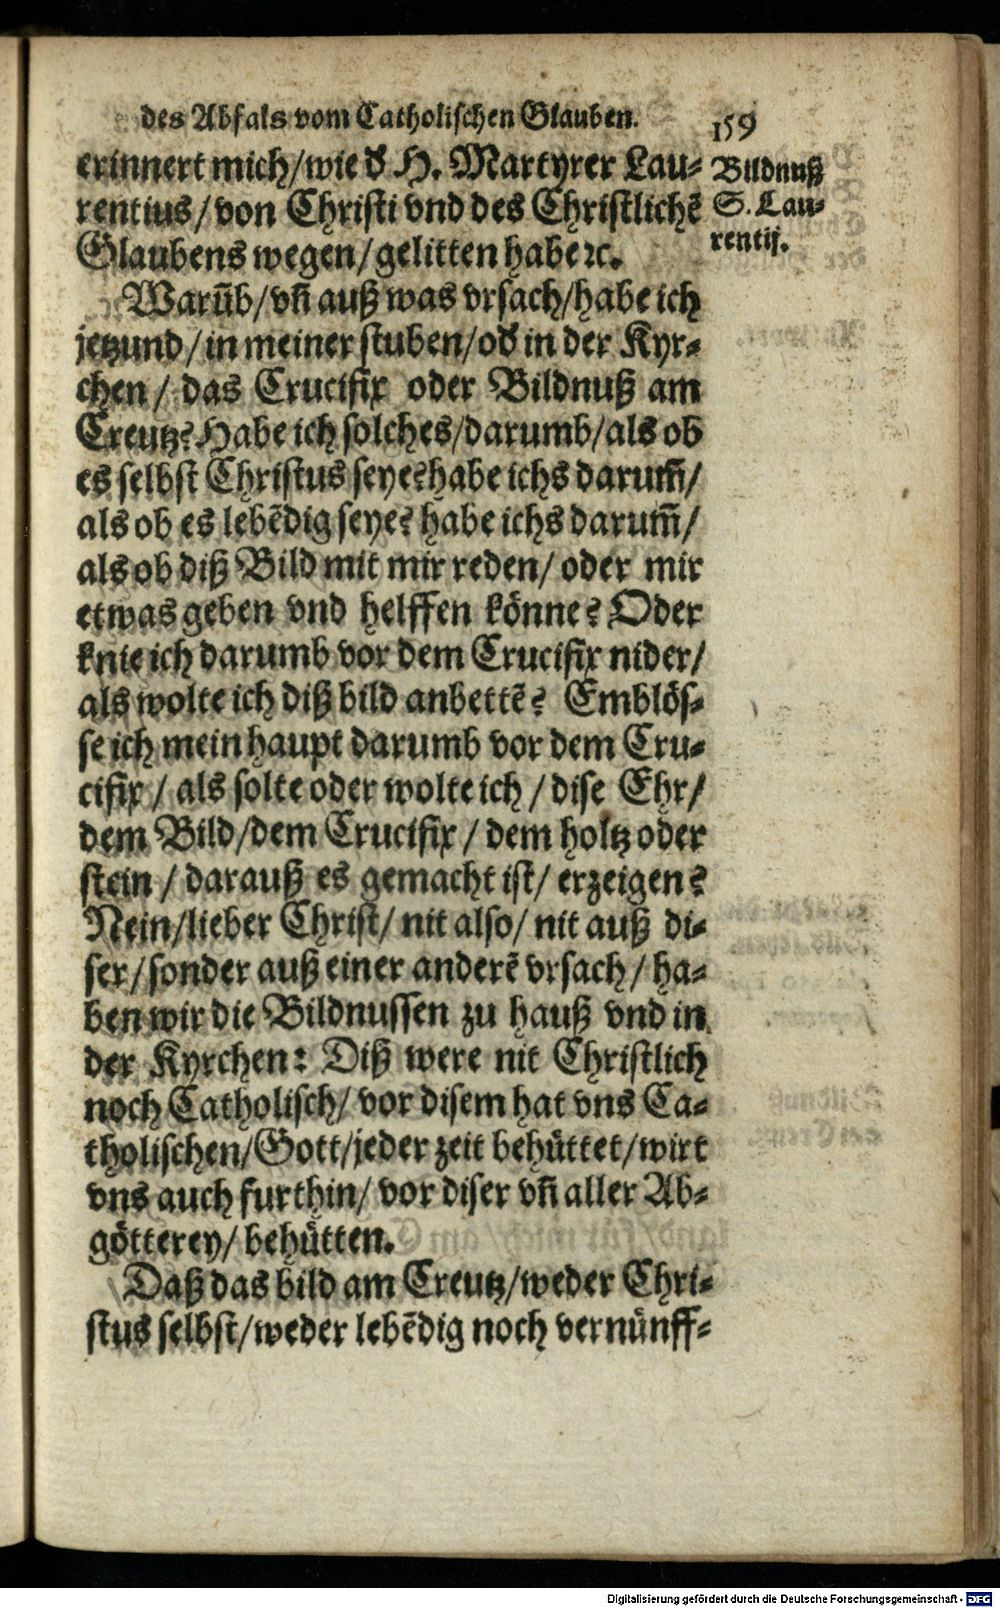 des Abfals vom Catholischen Glauben. 159
erinnert mich/wie d̕ H. Martyrer Lau-
rentius/von Christi vnd des Christlichẽ
Glaubens wegen/gelitten habe ꝛc.
Bildnuß
S. Lau-
rentij.
Warũb/vñ auß was vrsach/habe ich
jetzund/in meiner stuben/od̕ in der Kyr-
chen/ das Crucifix oder Bildnuß am
Creutz? Habe ich solches/darumb/als ob
es selbst Christus seye? habe ichs darum̃/
als ob es lebẽdig seye? habe ichs darum̃/
als ob diß Bild mit mir reden/ oder mir
etwas geben vnd helffen könne? Oder
knie ich darumb vor dem Crucifix nider/
als wolte ich diß bild anbettẽ? Emblös-
se ich mein haupt darumb vor dem Cru-
cifix/ als solte oder wolte ich/ dise Ehr/
dem Bild/dem Crucifix/ dem holtz oder
stein/ darauß es gemacht ist/ erzeigen?
Nein/lieber Christ/ nit also/ nit auß di-
ser/sonder auß einer anderẽ vrsach/ ha-
ben wir die Bildnussen zu hauß vnd in
der Kyrchen: Diß were nit Christlich
noch Catholisch/ vor disem hat vns Ca-
tholischen/Gott/jeder zeit behüttet/wirt
vns auch furthin/ vor diser vñ aller Ab-
götterey/ behütten.
Daß das bild am Creutz/weder Chri-
stus selbst/weder lebẽdig noch vernünff-
Digitalisierung gefördert durch die Deutsche Forschungsgemeinschaft - DFG